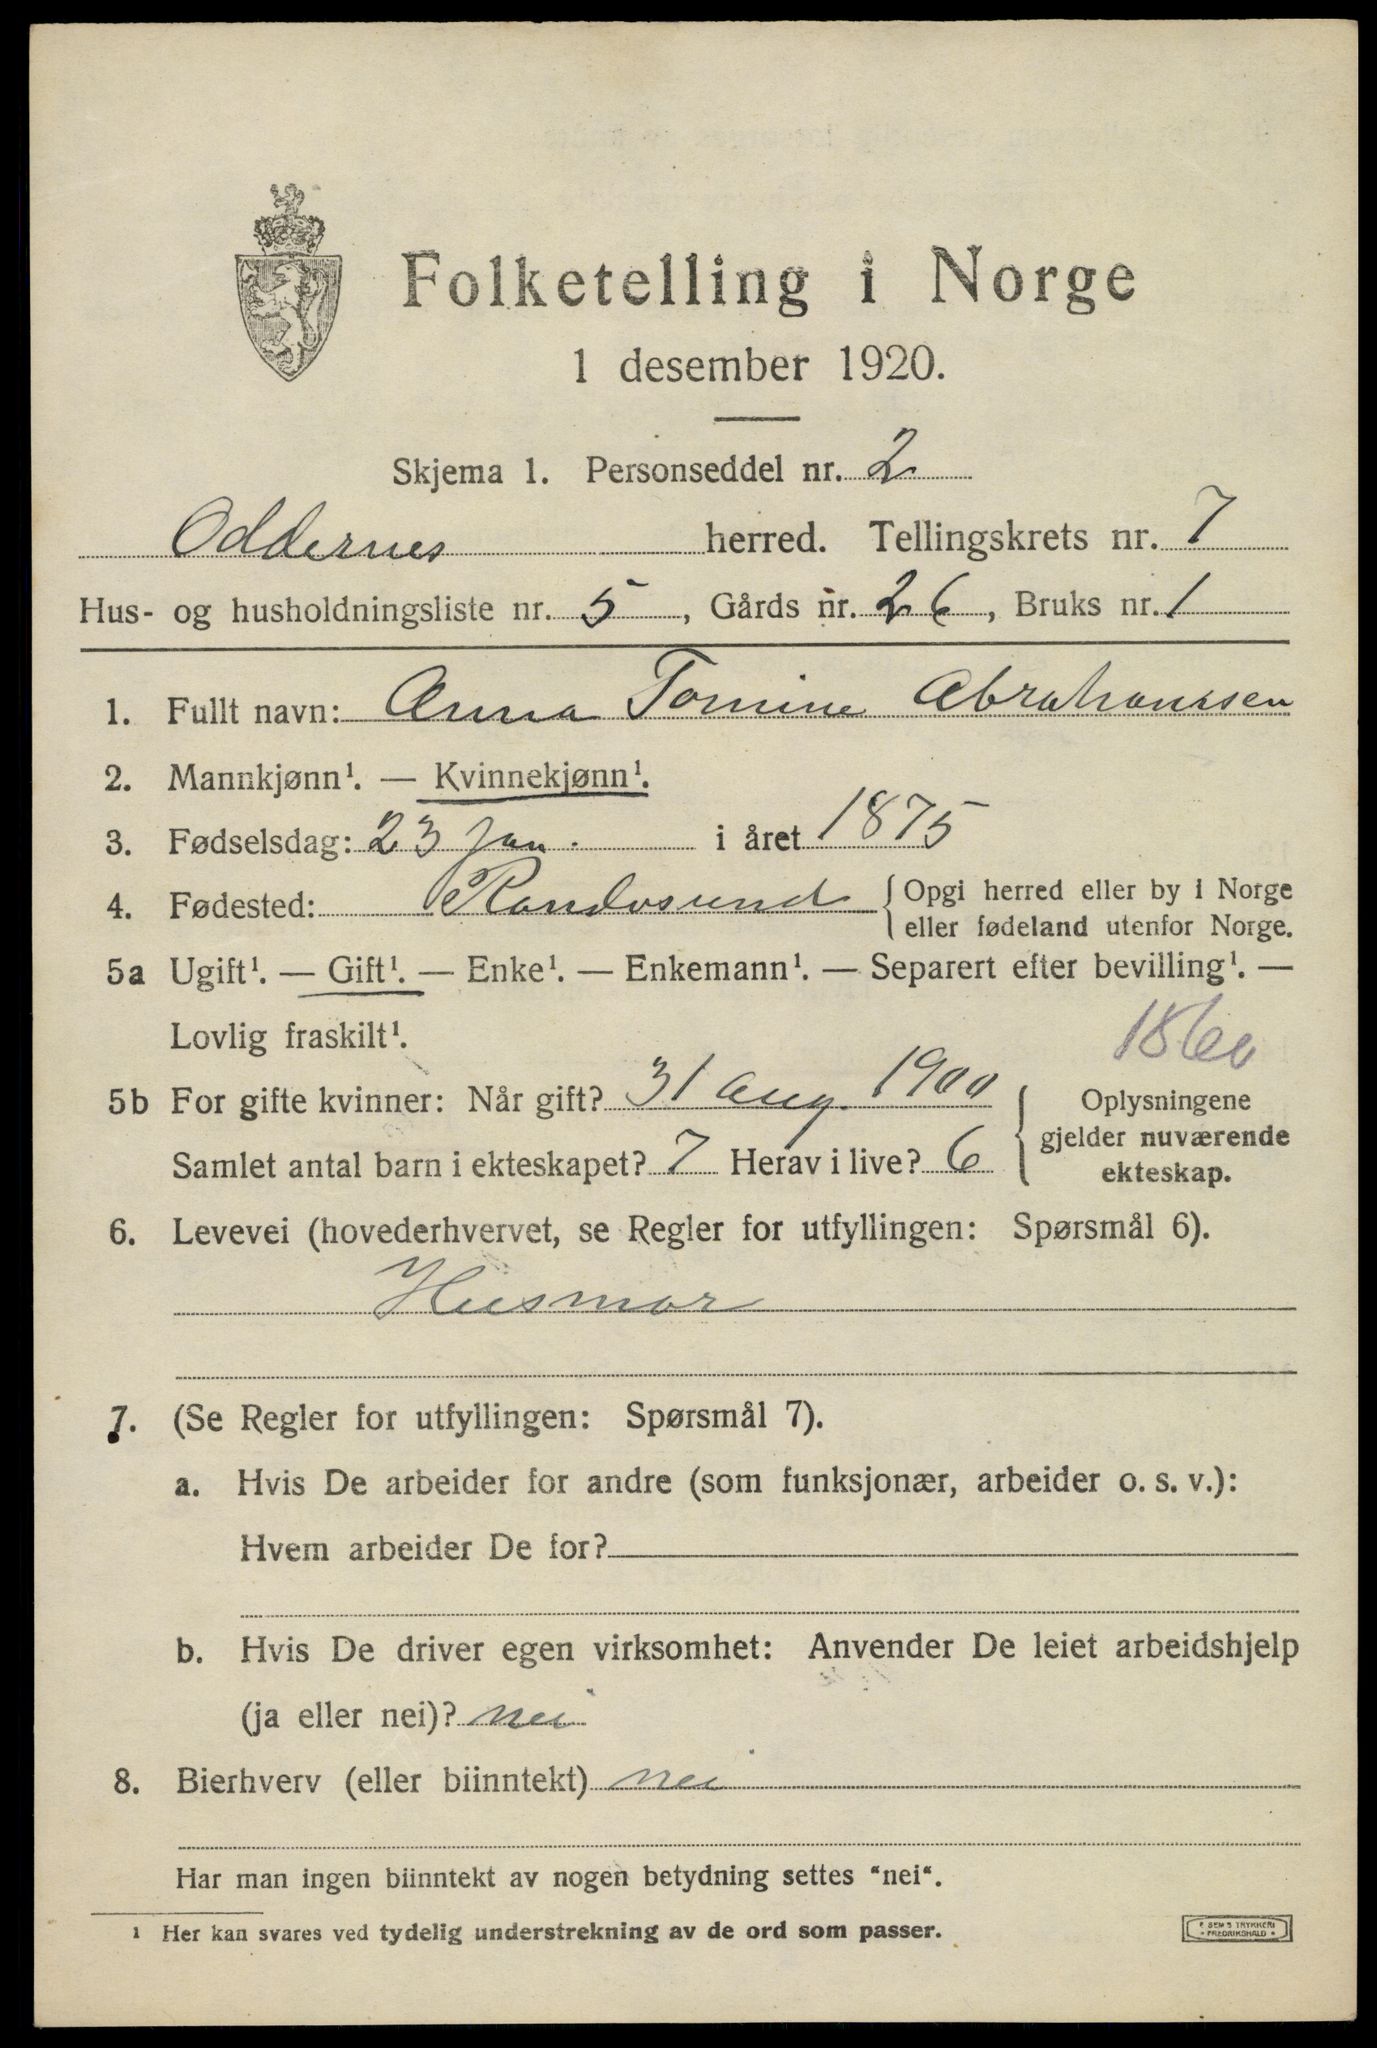 Folketelling i Norge
1 desember 1920.
Skjema 1. Personseddel nr. 2
Oddernes herred. Tellingskrets nr. 7
Hus- og husholdningsliste nr. 5, Gårds nr. 26, Bruks nr. 1
1. Fullt navn: Anna Tomine Abrahamssen
2. Mannkjønn¹. — Kvinnekjønn¹.
3. Fødselsdag: 23 jan. i året 1875
4. Fødested: Randøsund { Opgi herred eller by i Norge
eller fødeland utenfor Norge.
5a Ugift¹. — Gift¹. — Enke¹. — Enkemann¹. — Separert efter bevilling¹. —
Lovlig fraskilt¹.
1860
5b For gifte kvinner: Når gift? 31 aug. 1900 { Oplysningene
gjelder nuværende
Samlet antal barn i ekteskapet? 7 Herav i live? 6 ekteskap.
6. Levevei (hovederhvervet, se Regler for utfyllingen: Spørsmål 6).
Husmor
7. (Se Regler for utfyllingen: Spørsmål 7).
a. Hvis De arbeider for andre (som funksjonær, arbeider o. s. v.):
Hvem arbeider De for?
b. Hvis De driver egen virksomhet: Anvender De leiet arbeidshjelp
(ja eller nei)? nei
8. Bierhverv (eller biinntekt) nei
Har man ingen biinntekt av nogen betydning settes “nei“.
¹ Her kan svares ved tydelig understrekning av de ord som passer.
SEM'S TRYKKERI
FREDRIKSHALD